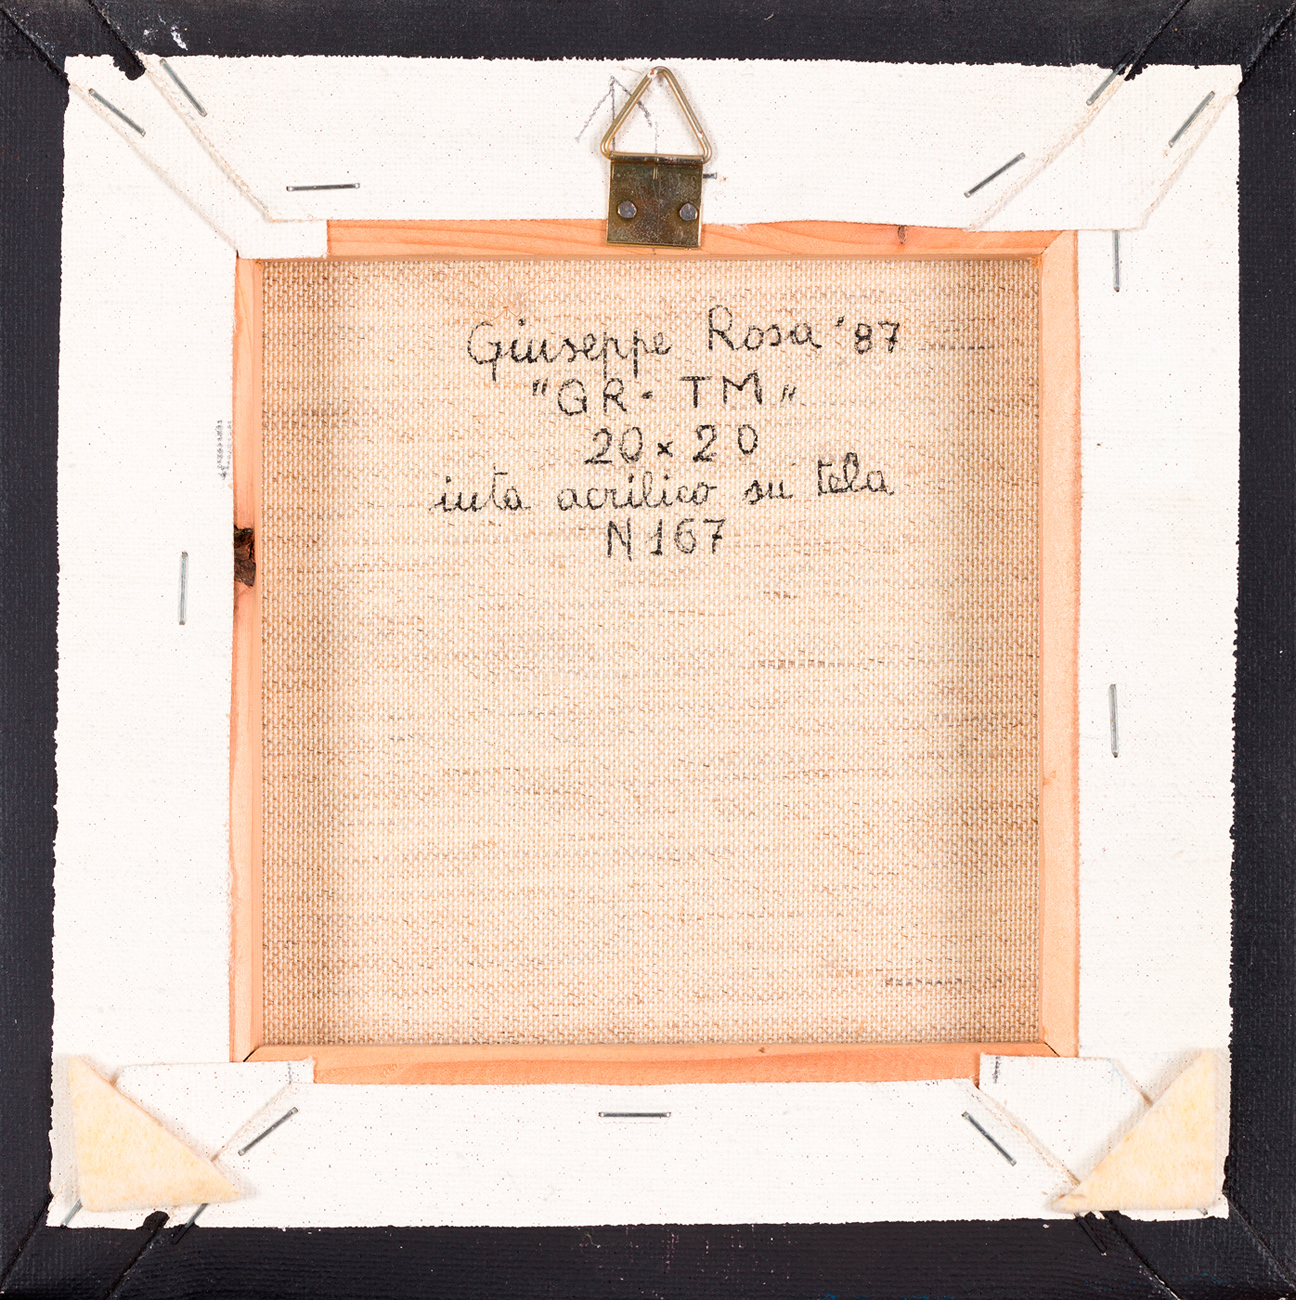 Giuseppe Rosa '87
"GR. TM"
20 x 20
iuta acrilico su tela
N 167